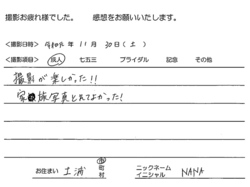 撮影お疲れ様でした。 感想をお願いいたします。
<撮影日時> 年 11 月 30 日 ( 土 )
<撮影項目> 成人 七五三 ブライダル 記念 その他
撮影が楽しかった!!
家族写真とれてよかった!
お住まい 土浦 市 町 村 ニックネーム イニシャル NANA